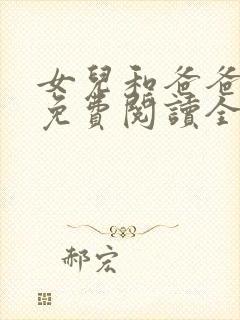 女兒和爸爸
免費閱讀全
郝宏